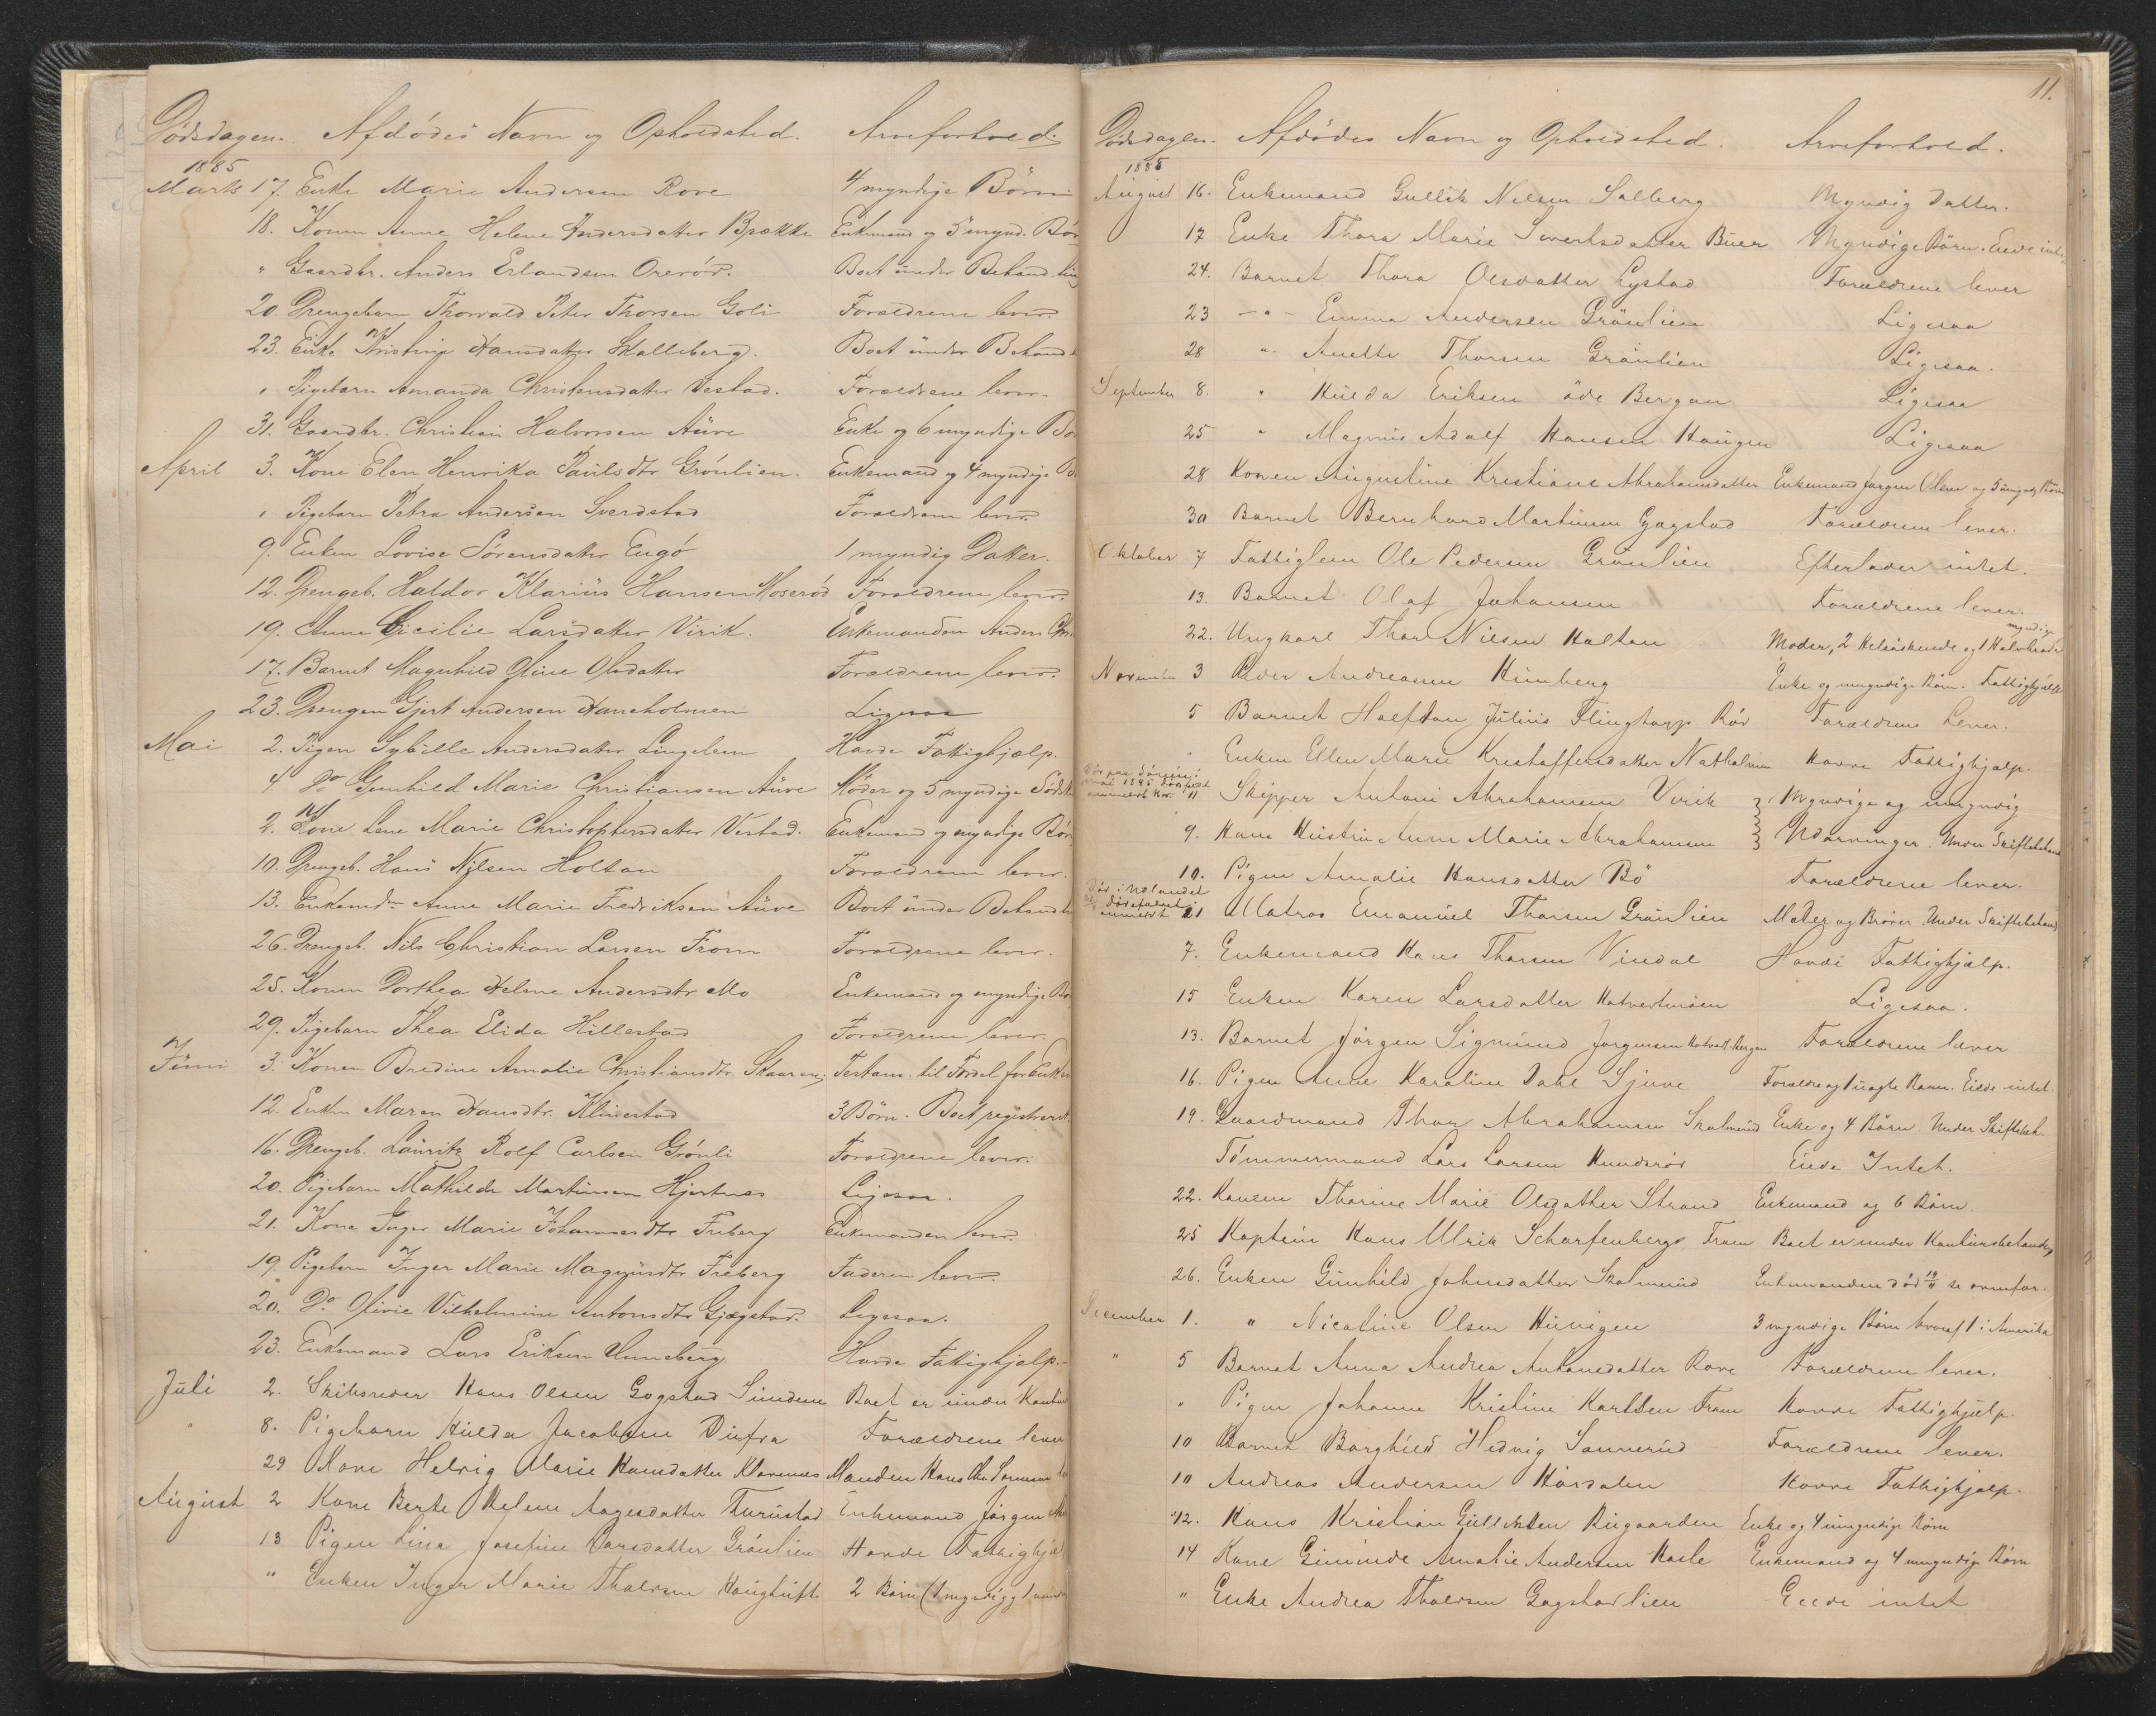 Dødsdagen. Afdødes Navn og Opholdsted. Arveforhold.
1885
Marts 17. Enke Marie Andersen Rove 4 myndige Børn.
18. Konen Anne Helene Andersdatter Brække Enkemand og 5 mynd. Bør
" Gaardbr. Anders Erlandsen Orerød. Boet under Behandlin
20. Drengebarn Thorvald Peter Thorsen Goli Forældrene lever.
23. Enke Kristine Hansdatter Skalleberg. Boet under Behand
" Pigebarn Amanda Christensdatter Vestad. Forældrene lever.
31. Gaardbr. Christian Halvorsen Auve Enke og 6 myndige Bø
April 3. Kone Elen Henrika Paulsdtr Grønlien. Enkemand og 4 myndige B
" Pigebarn Petra Andersen Sverdstad Forældrene lever.
9. Enken Lovise Sørensdatter Engø 1 myndig Datter.
12. Drengeb. Haldor Klarius Hansen Moserød Forældrene lever.
19. Anne Cicilie Larsdatter Virik. Enkemanden Anders Chr
17. Barnet Magnhild Oline Olsdatter Forældrene lever.
23. Drengen Gjert Andersen Haneholmen Ligesaa
Mai 2. Pigen Sybille Andersdatter Lingelem Havde Fattighjælp.
4 Do Gunhild Marie Christiansen Auve Moder og 5 myndige Sødsk
2. Kone Lene Marie Christophersdatter Vestad. Enkemand og myndige Bør
10. Drengeb. Hans Nilsen Holtan Forældrene lever.
13. Enkemd. Anne Marie Fredriksen Auve Boet under Behandl
26. Drengeb. Nils Christian Larsen Fram Forældrene lever.
25. Konen Dorthea Helene Andersdtr Mo Enkemand og myndige Bø
29. Pigebarn Thea Elida Hillestad Forældrene lever.
Juni 3. Konen Bredine Amalie Christiansdtr Skaaren, Testam. til Fordel for Enkem
12. Enken Maren Hansdtr. Klinestad 3 Børn. Boet registreret.
16. Drengeb. Lauritz Rolf Carlsen Grønli Forældrene lever.
20. Pigebarn Mathilde Martinsen Hjertnæs Ligesaa.
21. Kone Inger Marie Johannesdtr Freberg Enkemanden lever.
19. Pigebarn Inger Marie Magnusdtr Freberg Faderen lever.
20. Do Olivie Vilhelmine Antonsdtr Gjøgstad. Ligesaa.
23. Enkemand Lars Eriksen Unneberg Havde Fattighjælp.
Juli 2. Skibsreder Hans Olsen Gogstad Sundene Boet er under Konku
" 8. Pigebarn Hulda Jacobsen Diufra Forældrene lever
29 Kone Helvig Marie Hansdatter Klavenæs Manden Hans Chr. Sørensen
August 2 Kone Berte Helene Aagesdatter Furustad Enkemand Jørgen
13 Pigen Lina Josefine Larsdatter Grønlien Havde Fattighjæl
" Enken Inger Marie Thoresen Haugtuft 2 Børn (1 myndig og 1
11.
Dødsdagen. Afdødes Navn og Opholdsted. Arveforhold.
1885
August 16. Enkemand Gullik Nilsen Solberg Myndig Datter.
17 Enke Thora Marie Sivertsdatter Buer Myndige Børn. Eiede intet
24. Barnet Thora Olsdatter Lystad Forældrene lever
23 -"- Emma Andersen Grønlien Ligesaa
28 " Anette Thorsen Grønlien Ligesaa.
September 8. " Hulda Eriksen øde Bergan Ligesaa
25 " Magnus Adolf Hansen Haugen Ligesaa
28 Konen Augustine Kristiane Abrahamsdatter Enkemand Jørgen Olsen og 5 umynd. Børn
30 Barnet Bernhard Martinsen Gogstad Forældrene lever.
Oktober 7 Fattiglem Ole Pedersen Grønlien Efterlader intet.
13. Barnet Olaf Johansen Forældrene lever.
myndige
22. Ungkarl Thor Nilsen Holtan Moder, 2 Helsøskende og 1 Halvbroder
November 3 Peder Andreasen Himberg Enke og umyndige Børn. Fattighjælp
5 Barnet Halfdan Julius Klingtorp Rød Forældrene Lever.
" Enken Ellen Marie Kristoffersdatter Natholmen Havde Fattighjælp.
11 Skipper Antoni Abrahamsen Virik Myndige og umyndig
9. Hans Hustru Anne Marie Abrahamsen Udarvinger. Under Skiftebehand
10. Pigen Amalie Hansdatter Bø Forældrene lever.
Død i Udlandet
21 Matros Emanuel Thorsen Grønlien Moder og Brødre. Under Skiftebehand
7. Enkemand Hans Thorsen Vindal Havde Fattighjælp.
15 Enken Karen Larsdatter Hotvertmoen Ligesaa.
13. Barnet Jørgen Sigmund Jørgensen Hotvet-Bergan Forældrene lever
16. Pigen Anne Karoline Dahl Sjuve Forældre og 1 uægte Barn. Eiede intet.
19. Gaardmand Thor Abrahamsen Skolmerød Enke og 4 Børn. Under Skiftebeh.
Tømmermand Lars Larsen Hundsrød Eiede Intet.
22. Konen Thorine Marie Olsdatter Strand Enkemand og 6 Børn.
25 Kaptein Hans Ulrik Scharfenberg Fram Boet er under Konkursbehandlg
26. Enken Gunhild Johnsdatter Skolmerød Enkemanden død 19/11 se ovenfor.
December 1. " Nicoline Olsen Hunigen 3 myndige Børn hvoraf 1 i Amerika
" 5 Barnet Anna Andrea Antonsdatter Rove Forældrene lever.
" Pigen Johanne Kristine Karlsen Fram Havde Fattighjælp.
10 Barnet Borghild Hedvig Sannerud Forældrene lever.
10 Andreas Andersen Haasdalen Havde Fattighjælp.
12. Hans Kristian Gulliksen Rugaarden Enke og 4 umyndige Børn
14 Kone Gurinde Amalie Andersen Hasle Enkemand og 4 umyndige Børn
" Enke Andrea Thoersen Gogstadlien Eiede intet